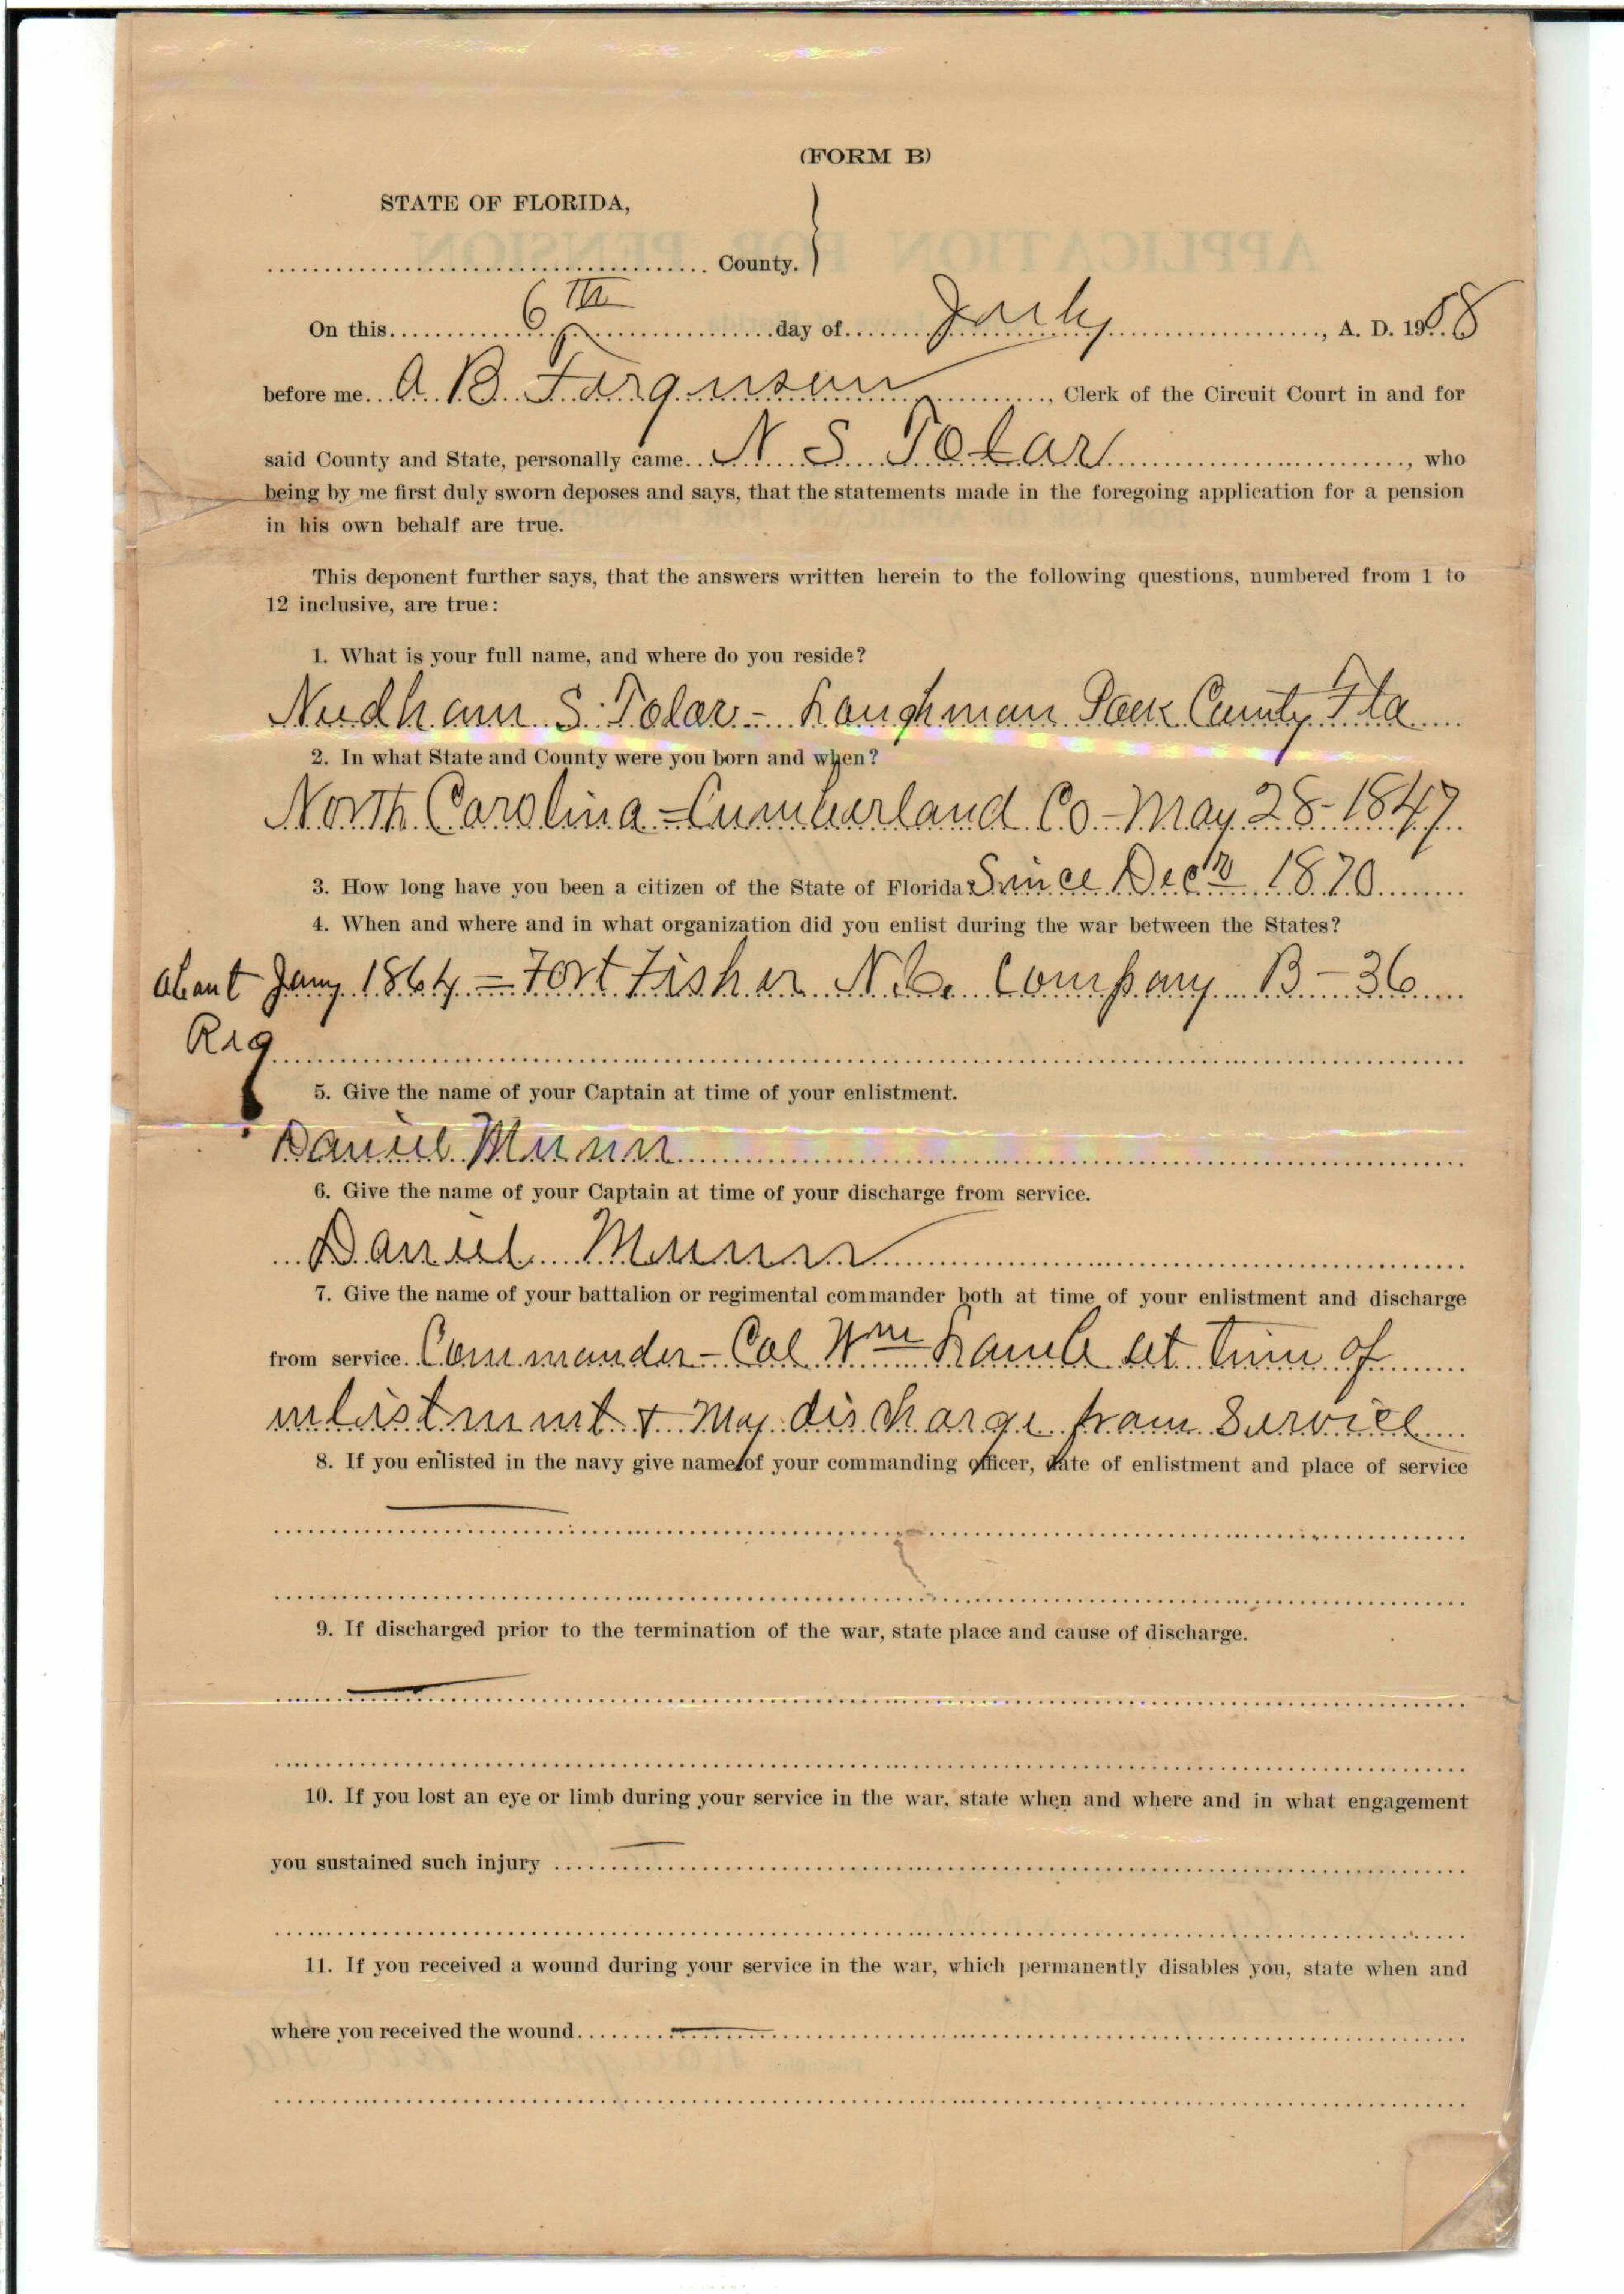 (FORM B)
STATE OF FLORIDA,
County.
On this 6th day of July, A. D. 1908
before me A. B. Ferguson, Clerk of the Circuit Court in and for
said County and State, personally came N S Tolar, who
being by me first duly sworn deposes and says, that the statements made in the foregoing application for a pension
in his own behalf are true.
This deponent further says, that the answers written herein to the following questions, numbered from 1 to
12 inclusive, are true:
1. What is your full name, and where do you reside?
Needham S. Tolar - Loughman Polk County Fla
2. In what State and County were you born and when?
North Carolina - Cumberland Co - May 28 - 1847
3. How long have you been a citizen of the State of Florida Since Dec 1870
4. When and where and in what organization did you enlist during the war between the States?
about Jany 1864 = Fort Fisher N.C. Company B - 36
Reg
5. Give the name of your Captain at time of your enlistment.
Daniel Munn
6. Give the name of your Captain at time of your discharge from service.
Daniel Munn
7. Give the name of your battalion or regimental commander both at time of your enlistment and discharge
from service. Commander - Col Wm Lamb at time of
enlistment & my discharge from Service
8. If you enlisted in the navy give name of your commanding officer, date of enlistment and place of service
9. If discharged prior to the termination of the war, state place and cause of discharge.
10. If you lost an eye or limb during your service in the war, state when and where and in what engagement
you sustained such injury
11. If you received a wound during your service in the war, which permanently disables you, state when and
where you received the wound